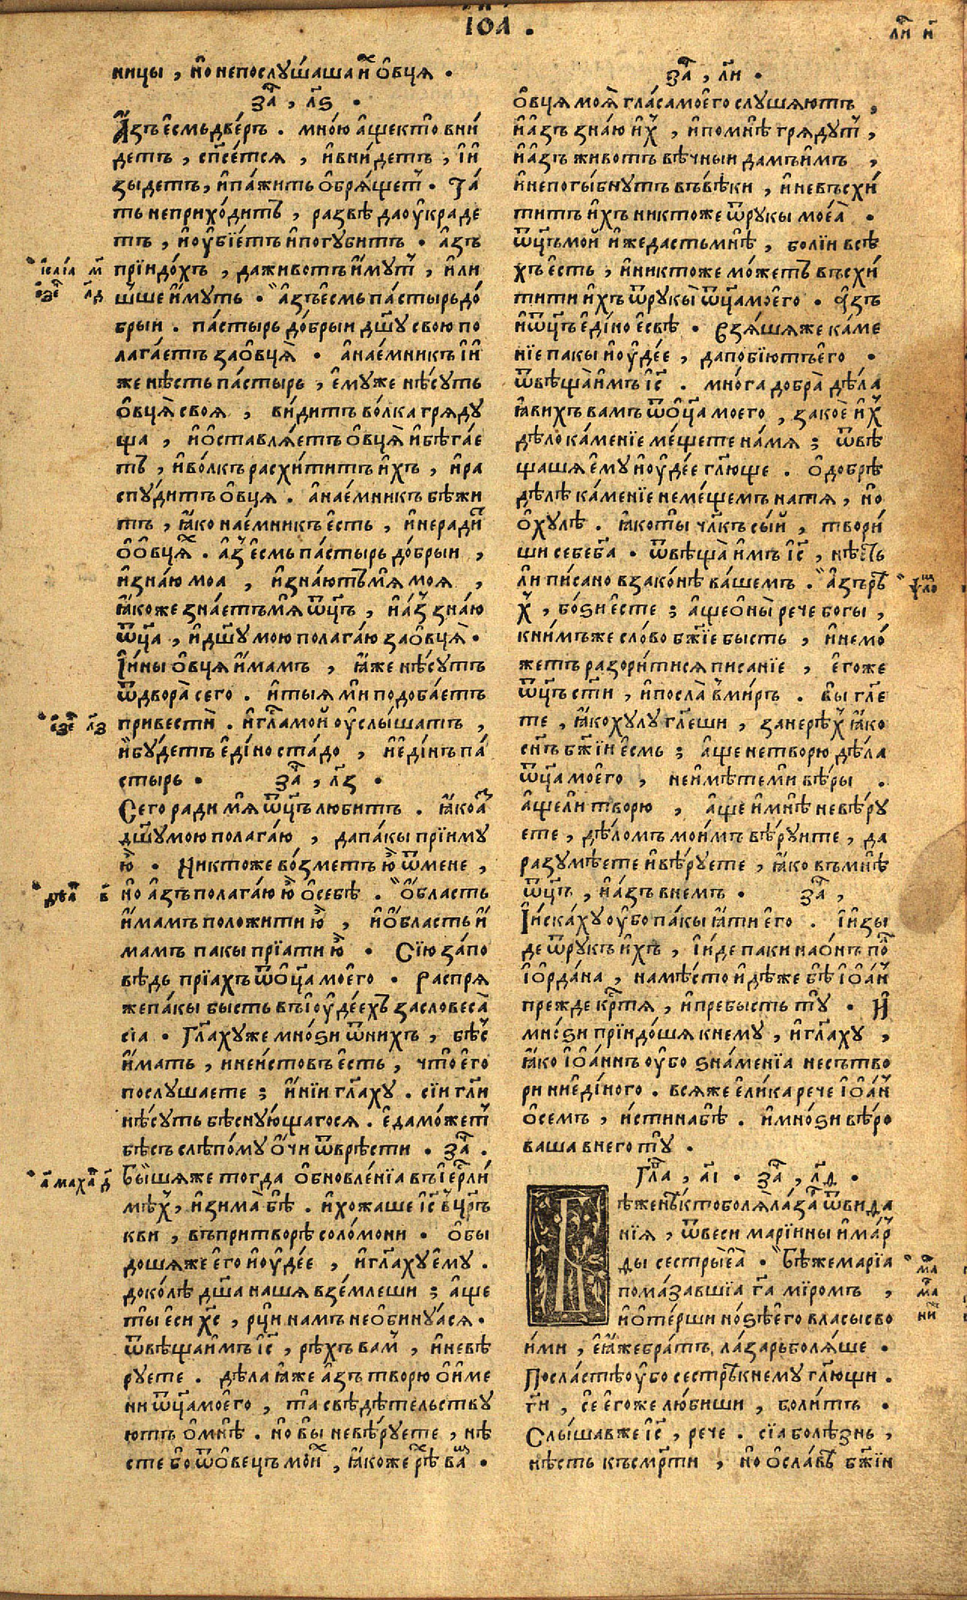 їѡа .
ницы , но непослꙋшаша и҆хъ о҆вцѧ .
за҄ , л҃ѕ .
А҆зъ є҆смь двє́рь . мно́ю а҆ще кто вни́
детъ , спсе́тсѧ , и҆ вни́детъ , і҆и҆
зы́детъ , и҆ па́жить о҆брѧ́щет . Та́
ть не прихо́дитъ , развѣ да о҆у҆краде
тъ , и҆ о҆у҆бїе́тъ и҆ погꙋбитъ . а҆зъ
прїидо́хъ , да живо́тъ и҆́мꙋт , и҆ ли
шше и҆́мꙋть . а҆зъ є҆смь па́стырь до́
брыи . па́стырь до́брыи дш҃ꙋ свою по
лага́етъ за о҆вцѧ̀ . а҆ нае́мникъ і҆и҆
же нѣ́сть па́стырь , є҆мꙋже нѣ́сꙋть
о҆вцѧ̀ своѧ , ви́дитъ во́лка грѧдꙋ
ща , и҆ ѡ҆ставлѧ́етъ о҆вцѧ̀ и҆ бѣ́гае
тъ , и҆ во́лкъ расхи́титъ и҆́хъ , и҆ ра
спꙋ́дитъ о҆вцѧ . а҆ нае́мникъ бѣжи
тъ , ꙗ҆ко нае́мникъ є҆сть , и҆ неради́т
о҆ о҆вцѧ́х . а҆з є҆смь па́стырь до́брыи ,
и҆ зна́ю моа , и҆ зна́ютъ мѧ моѧ ,
ꙗ҆коже зна́етъ мѧ ѿц҃ъ , и҆ а҆з зна́ю
ѿц҃а , и҆ дш҃ꙋ мою полага́ю за о҆вцѧ̀ .
І҆и҆ны о҆вцѧ и҆́мамъ , ꙗ҆же нѣ́сꙋть
ѿ двора̀ сего . и҆ тыѧ ми подоба́етъ
привестѝ . и҆ гл҃а мой о҆у҆слы́шатъ ,
и҆ бꙋ́детъ є҆ди́но ста́до , и҆ є҆ди́нъ па́
стырь . за҄ , л҃з .
Сего ради мѧ ѿц҃ъ лю́битъ . ꙗ҆ко а҆з
дш҃ꙋ мою полага́ю , да пакы прїимꙋ
ю҆̀ . Никтоже во́зметъ ю҆̀ ѿ мене ,
но а҆зъ полага́ю ю҆̀ о҆ себѣ̀ . о҆́бласть
и҆́мамъ положи́ти ю҆̀ , и҆ о҆́бласть и҆́
мамъ пакы прїати ю҆̀ . Сїю за́по
вѣдь прїахъ ѿ о҆ц҃а моего . Распрѧ
же пакы бысть въ і҆о҆у҆де́ехъ за словеса̀
сїа . Гл҃ахꙋ же мно́ѕи ѿ нихъ , бѣс
и҆́мать , и неи́стовъ є҆сть , что є҆го
послꙋшаете ; и҆нїи гл҃ахꙋ . сїи гл҃и
нѣ́сꙋть бѣснꙋ́ющагосѧ . є҆да мо́жет
бѣсъ слѣпо́мꙋ о҆́чи ѿвре́сти . за҄ .
Бы́шѧже тогда о҆бновле́нїа въ і҆ер҃ли
мѣх , и҆ зима̀ бѣ . и҆ хожаше і҆с҃ в цр҃ъ
кви , въ притво́рѣ соло́мони . о҆бы
дошѧже є҆го и҆о҆у҆де́е , и҆ гл҃ахꙋ є҆мꙋ .
доко́лѣ дш҃а нашѧ взе́млеши ; а҆ще
ты є҆си хс҃ , рци намъ не обинꙋ́ѧсѧ .
ѿвѣща и҆мъ і҆с҃ , рѣхъ вам , и҆ невѣ
рꙋете . дѣла ꙗ҆же а҆зъ творю о҆ и҆ме
ни ѿц҃а моего , та свѣдѣтельствꙋ
ютъ о҆ мнѣ̀ . но вы невѣ́рꙋете , нѣ
сте бо ѿ о҆вецъ мои́х , ꙗ҆коже рѣх ва́м .
л҃и и҃
за҄ , л҃и .
о҆вцѧ моѧ̀ гла́са моего слꙋшѧютъ ,
и҆ а҆зъ зна́ю и҆́х , и҆ по мнѣ̀ грѧдꙋт ,
и҆ а҆зъ живо́тъ вѣ́чныи дамъ и҆мъ ,
и҆ непогы́бнꙋтъ въ вѣ́ки , и҆ не въсхи́
титъ и҆́хъ никтоже ѿ рꙋкы мое́ѧ .
ѿц҃ъ мой и҆же дастъ мнѣ , бо́лїи всѣ
хъ є҆сть , и҆ никтоже мо́жетъ въсхи́
тити и҆́хъ ѿ рꙋкы̀ ѿц҃а моего . а҆зъ
и҆ ѿц҃ъ є҆ди́но є҆свѣ . Взѧ́шѧже каме
нїе пакы и҆о҆у҆де́е , да побїютъ є҆го .
ѿвѣща̀ и҆мъ і҆с҃ . мно́га добра̀ дѣ́ла
ꙗ҆ви́хъ вамъ ѿ о҆ц҃а моего , за кое и҆́х
дѣ́ло ка́менїе ме́щете на́ мѧ ; ѿвѣ
щашѧ є҆мꙋ и҆о҆у҆де́е гл҃юще . о҆ добрѣ
дѣ́лѣ ка́менїе неме́щемъ на тѧ , но
о҆ хꙋлѣ̀ . ꙗ҆ко ты чл҃къ сый , твори́
ши себе бг҃а . ѿвѣща̀ и҆мъ і҆с҃ , нѣ́сть
ли писано в зако́нѣ ва́шемъ . а҆зъ рѣ
х , бо́ѕи є҆сте ; а҆ще о҆ны̀ рече богы ,
к ни́мже сло́во бж҃їе бысть , и҆ не мо́
жетъ разори́тисѧ писанїе , є҆гоже
ѿц҃ъ ст҃и , и҆ посла̀ в ми́ръ . вы гл҃е
те , ꙗ҆ко хꙋлꙋ гл҃еши , зане рѣх ꙗ҆ко
сн҃ъ бж҃їи є҆смь ; а҆ще не творю дѣ́ла
ѿц҃а моего , не и҆мѣ́те ми вѣ́ры .
а҆ще ли творю , а҆ще и҆ мнѣ̀ не вѣ́рꙋ
ете , дѣло́мъ мои́мъ вѣ́рꙋите , да
разꙋмѣ́ете и҆ вѣ́рꙋете , ꙗ҆ко въ мнѣ
ѿц҃ъ , и҆ а҆зъ в немъ . за҄ ,
І҆иска́хꙋ о҆у҆бо па́кы ꙗ҆ти є҆го . і҆и҆зы
де ѿ рꙋкъ и҆́хъ , і҆и҆де паки на о҆нъ по́л
і҆о҆рда́на , на мѣ́сто и҆дѣ́же бѣ̀ і҆о҆а́н
прежде кр҃тѧ , и҆ пребысть тꙋ . И҆
мно́ѕи прїидошѧ к немꙋ , и҆ гл҃ахꙋ ,
ꙗ҆ко і҆о҆а́ннъ о҆у҆бо ѕна́менїа не сътво
ри ни є҆ди́ного . всѧже є҆лика рече і҆о҆а́н
о҆ семъ , и҆́стина бѣ̀ . и҆ мно́ѕи вѣ́ро
ваша в него тꙋ .
Гл҃а , а҃і . за҄ , л҃ѳ .
Бѣ же нѣкто болѧ̀ ла́за ѿ вида
нїѧ , ѿ веси марїины и҆ мар
ды сестры є҆ѧ̀ . бѣ́же марїа
пома́завшїа гд҃а мѵ́ромъ ,
и҆ о҆те́рши но́ѕѣ є҆го власы сво
и́ми , є҆ѧ́же братъ ла́зарь болѧ́ше .
Посла́стѣ о҆у҆бо сестрѣ к немꙋ гл҃ющи .
гд҃и , се є҆гоже лю́биши , боли́тъ .
Слы́шавже і҆с҃ , рече . сїа болѣ́знь ,
нѣ́сть къ сме́рти , но о҆ сла́вѣ бж҃їи